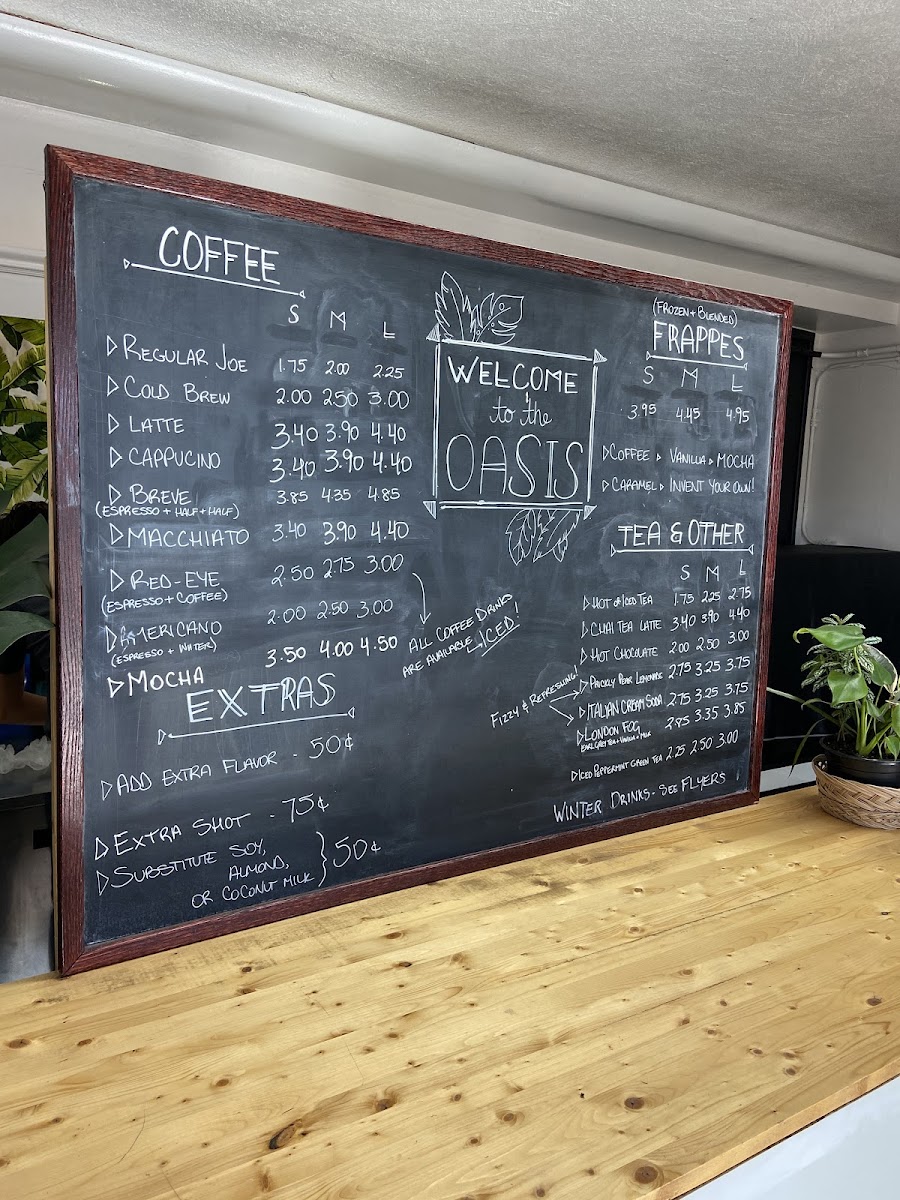 COFFEE
S M L
REGULAR JOE 1.75 2.00 2.25
COLD BREW 2.00 2.50 3.00
LATTE 3.40 3.90 4.40
CAPPUCINO 3.40 3.90 4.40
BREVE 3.85 4.35 4.85
(ESPRESSO + HALF + HALF)
MACCHIATO 3.40 3.90 4.40
RED-EYE 2.50 2.75 3.00
(ESPRESSO + COFFEE)
AMERICANO 2.00 2.50 3.00
(ESPRESSO + WATER)
MOCHA 3.50 4.00 4.50
ALL COFFEE DRINKS
ARE AVAILABLE ICED!
EXTRAS
ADD EXTRA FLAVOR - 50¢
EXTRA SHOT - 75¢
SUBSTITUTE SOY,
ALMOND,
OR COCONUT MILK } 50¢
WELCOME
to the
OASIS
(FROZEN + BLENDED)
FRAPPES
S M L
3.95 4.45 4.95
COFFEE VANILLA MOCHA
CARAMEL INVENT YOUR OWN!
TEA & OTHER
S M L
HOT or ICED TEA 1.75 2.25 2.75
CHAI TEA LATTE 3.40 3.90 4.40
HOT CHOCOLATE 2.00 2.50 3.00
PRICKLY PEAR LEMONADE 2.75 3.25 3.75
FIZZY & REFRESHING!
ITALIAN CREAM SODA 2.75 3.25 3.75
LONDON FOG 2.85 3.35 3.85
EARL GREY TEA + VANILLA + MILK
ICED PEPPERMINT GREEN TEA 2.25 2.50 3.00
WINTER DRINKS - SEE FLYERS